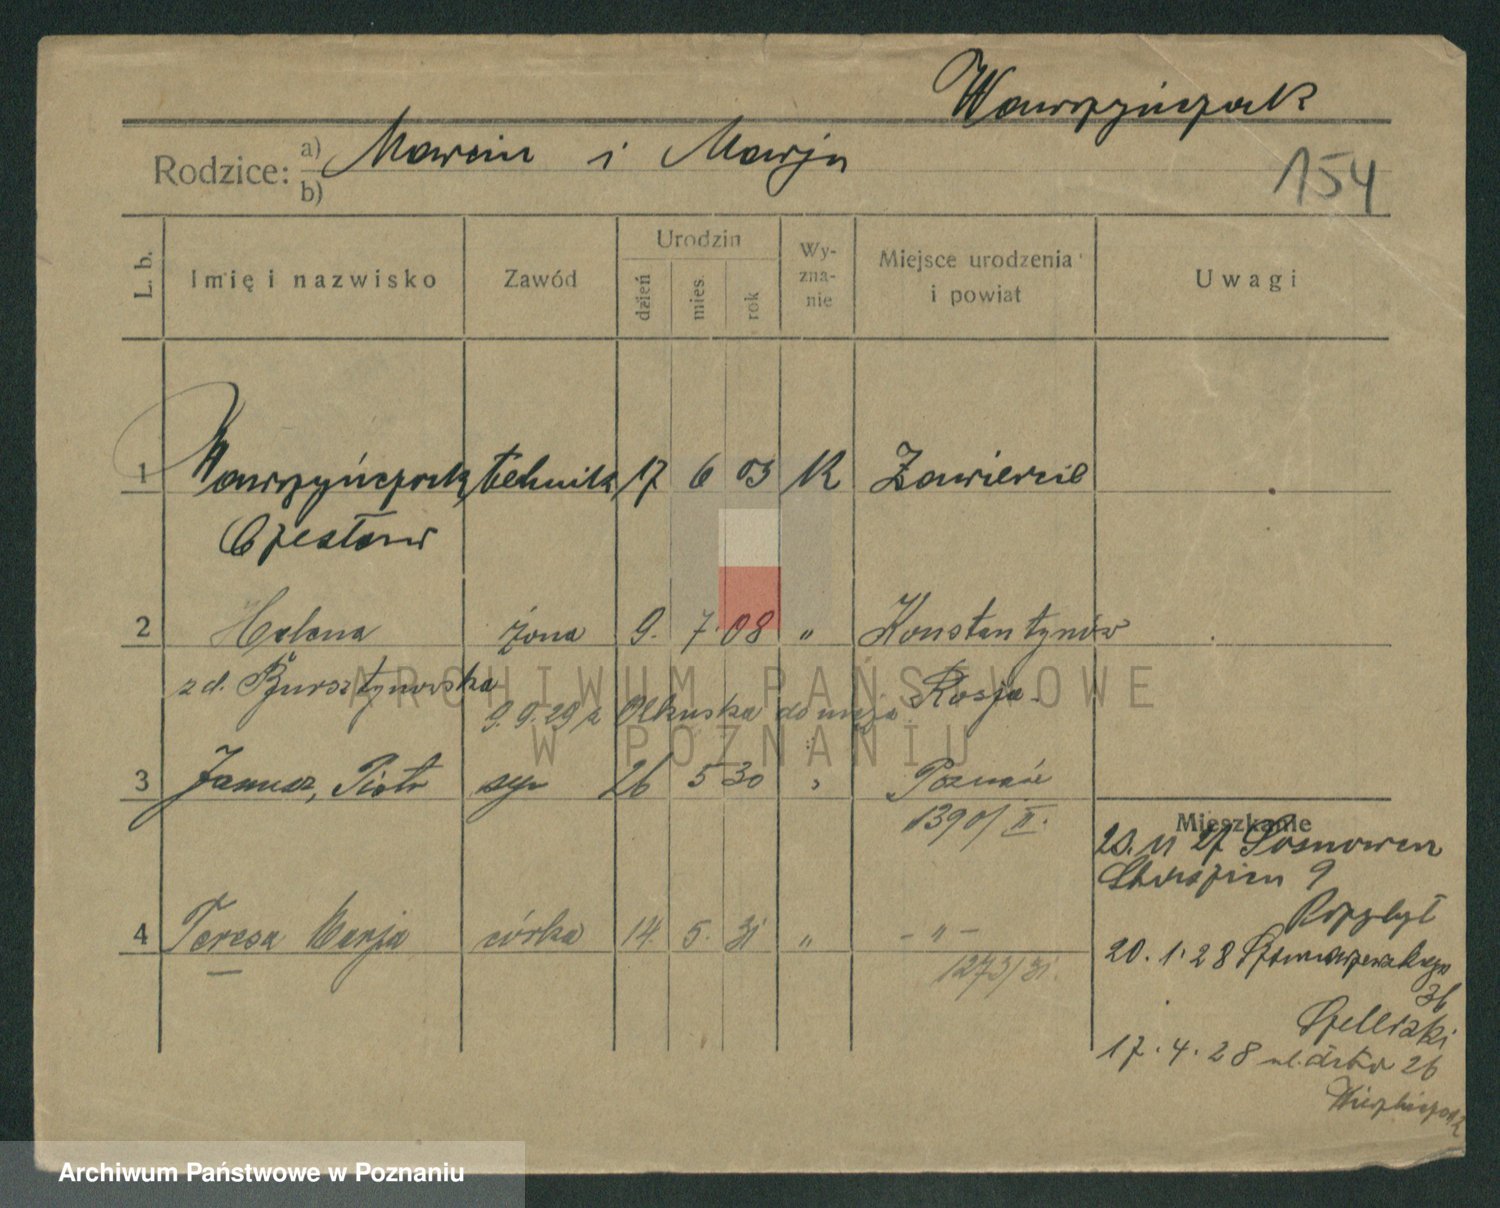 Wawrzyńczak
Rodzice: a) Marcin i Marja
b)
154
L. b. Imię i nazwisko Zawód Urodzin dzień mies. rok Wyznanie Miejsce urodzenia i powiat Uwagi
1 Wawrzyńczak technik 17 6 03 K Zawiercie
Czesław
2 Helena żona 9. 7. 08 " Konstantynów
z d. Bursztynowska Rosja
9.9.29 z Olkuska do męża
3 Janusz, Piotr syn 26 5 30 " Poznań
1390/II.
Mieszkanie
20. 11 27 Sosnowca
9
Rozpłył
4 Teresa Marja córka 14. 5. 31 " - " -
1273/31.
20. 1. 28
36
17. 4. 28 ul. 26
ARCHIWUM PAŃSTWOWE
W POZNANIU
Archiwum Państwowe w Poznaniu